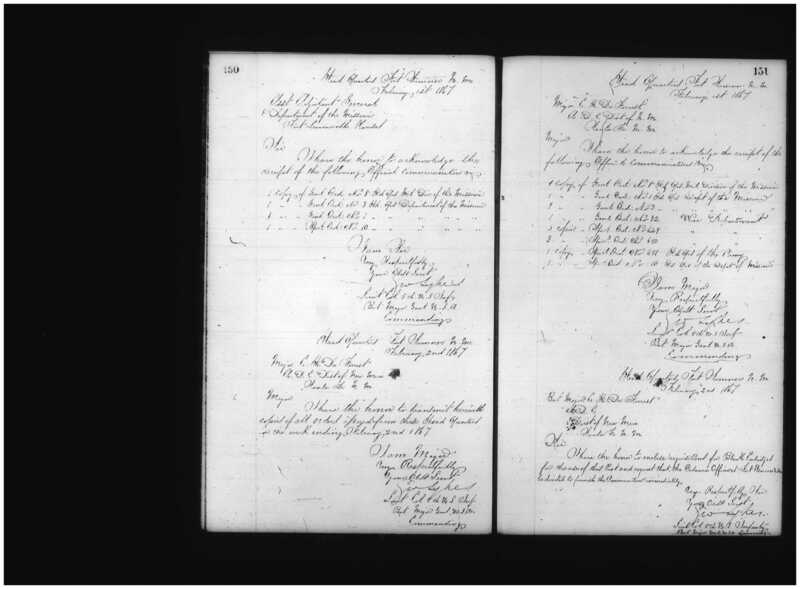 150
Head Quarters Fort Sumner N. M.
February 1st 1867
Asst Adjutant General
Department of the Missouri
Fort Leavenworth Kansas
Sir
I have the honor to acknowledge the
receipt of the following Official Communications
1 Copy of Genl Ord. No 8 Hd Qrs Mil Div of the Missouri
1 " " Genl Ord. No 3 Hd. Qrs Department of the Missouri
1 " " Genl Ord. No " " " "
1 " " Spcl. Ord. No 10 " " " "
I am Sir
Very Respectfully
Your Obdt Servt
Geo Sykes
Lieut Col 5th U.S Inf
Bvt Majr Genl U.S.A
Commanding
Head Quarters Fort Sumner N. M.
February 2nd 1867
Major C. H. De Forrest
A. D. C. Dist of New Mexico
Santa Fe N. M
Major
I have the honor to transmit herewith
copies of all orders issued from these Head Quarters
in the week ending February 2nd 1867
I am Major
Very Respectfully
Your Obdt Servt
Geo Sykes
Lieut Col 5th U.S Inf
Bvt Majr Genl U.S.A.
Commanding
151
Head Quarters Fort Sumner N. M.
February 1st 1867
Major C. H. De Forrest
A. D. C. Dist of N. M
Santa Fe N. M
Major
I have the honor to acknowledge the receipt of the
following Official Communications
1 Copy of Genl Ord. No 8 Hd Qrs Mil Division of the Missouri
1 " " Genl Ord. No Hd Qrs Dept of the Missouri
1 " " Genl Ord. No 3 " " "
1 " " Genl Ord. No 92 War Department
2 copies " Spcl. Ord. No
3 " " Spcl. Ord. No
1 Copy " Spcl Ord. No Hd Qrs of the Army
1 " " Sp. Ord. No 10 Hd Qrs Dept of Missouri
I am Major
Very Respectfully
Your Obdt Servt
Geo Sykes
Lieut Col 5th U.S Inf
Bvt Majr Genl U.S.A
Commanding
Head Quarters Fort Sumner N. M
February 2nd 1867
Bvt Major C. H. De Forrest
A. D. C.
District of New Mexico
Santa Fe N. M
Sir
I have the honor to enclose requisition for Blank Cartridges
for the use of this Post and request that the Ordnance Officer at Fort Union
be directed to furnish the immediately.
Very Respectfully Sir
Your Obdt Servt
Geo Sykes
Lieut Col 5th U.S Infantry
Bvt Majr Genl U.S.A Commanding